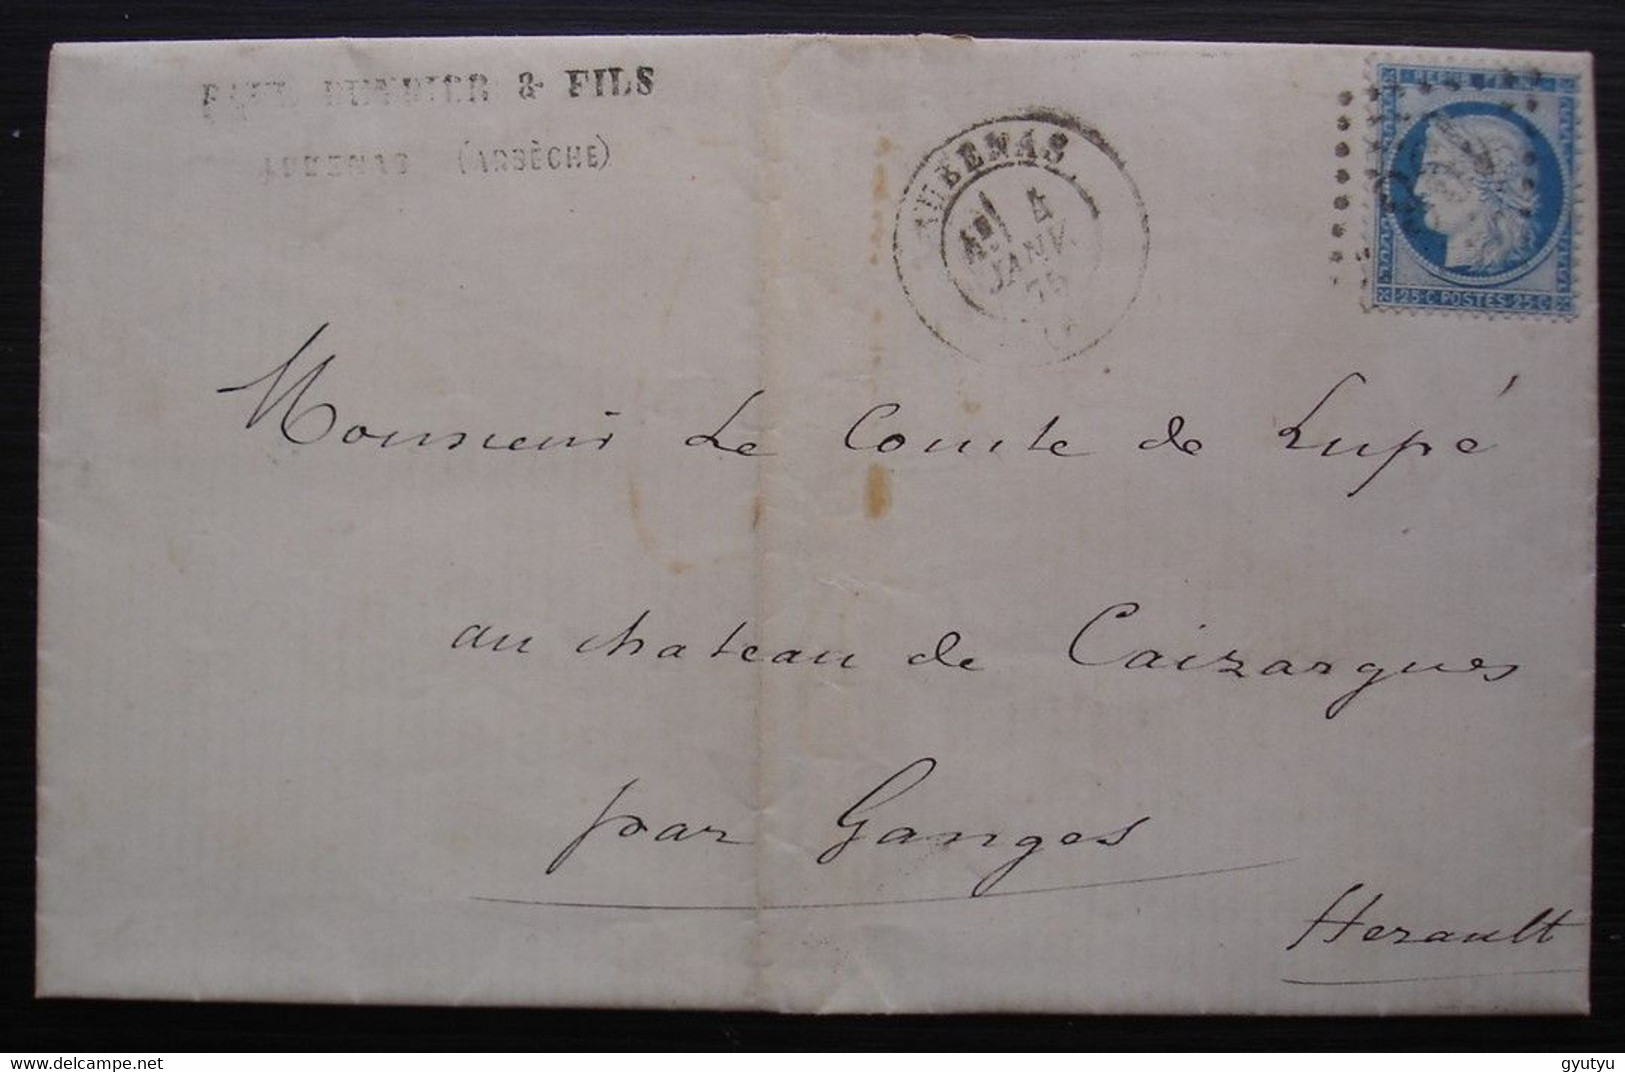 & FILS
AUBENAS (ARDÈCHE)
AUBENAS
4
JANV.
75
REPUB FRANC
25 C POSTES 25 C
Monsieur Le Comte de Lupé
au chateau de Caizargues
par Ganges
Herault
gyutyu